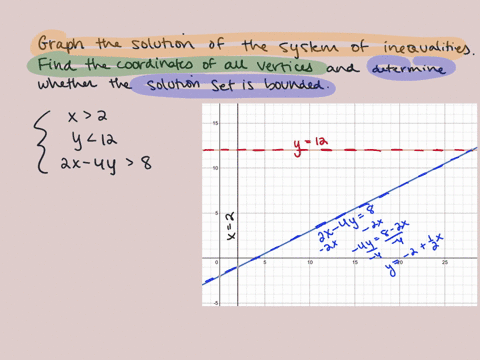 Graph the solution of the system of inequalities.
Find the coordinates of all vertices and determine
whether the solution set is bounded.
x > 2
y < 12
2x - 4y > 8
15
y = 12
10
5
x = 2
2x - 4y = 8
-2x -2x
-4y = 8 - 2x
-4 -4
y = -2 + 1/2 x
0 5 10 15 20 25
-5